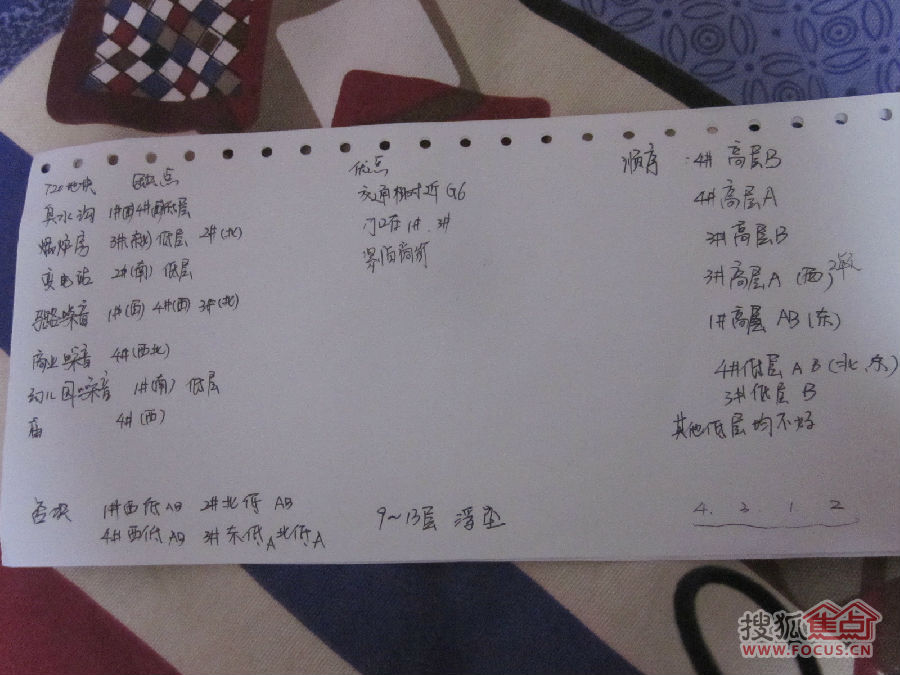 T20地块 缺点
臭水沟 1#(西)4#(西)低层
燃炉房 3# 低层 2#(北)
变电站 2#(南) 低层
马路噪音 1#(西) 4#(西) 3#(北)
商业噪音 4#(西北)
幼儿园噪音 1#(南) 低层
庙 4#(西)
否决 1#西低AB 2#北低 AB
4#西低AB 3#东低A北低A
优点
交通相对近 G6
门口在1#、3#
紧临商街
9~13层 浮尘
顺序:4# 高层B
4# 高层A
3# 高层B
3# 高层A (西)
1# 高层 AB (东)
4# 低层 A B (北、东)
3# 低层 B
其他低层均不好
4. 3. 1. 2
搜狐焦点
WWW.FOCUS.CN